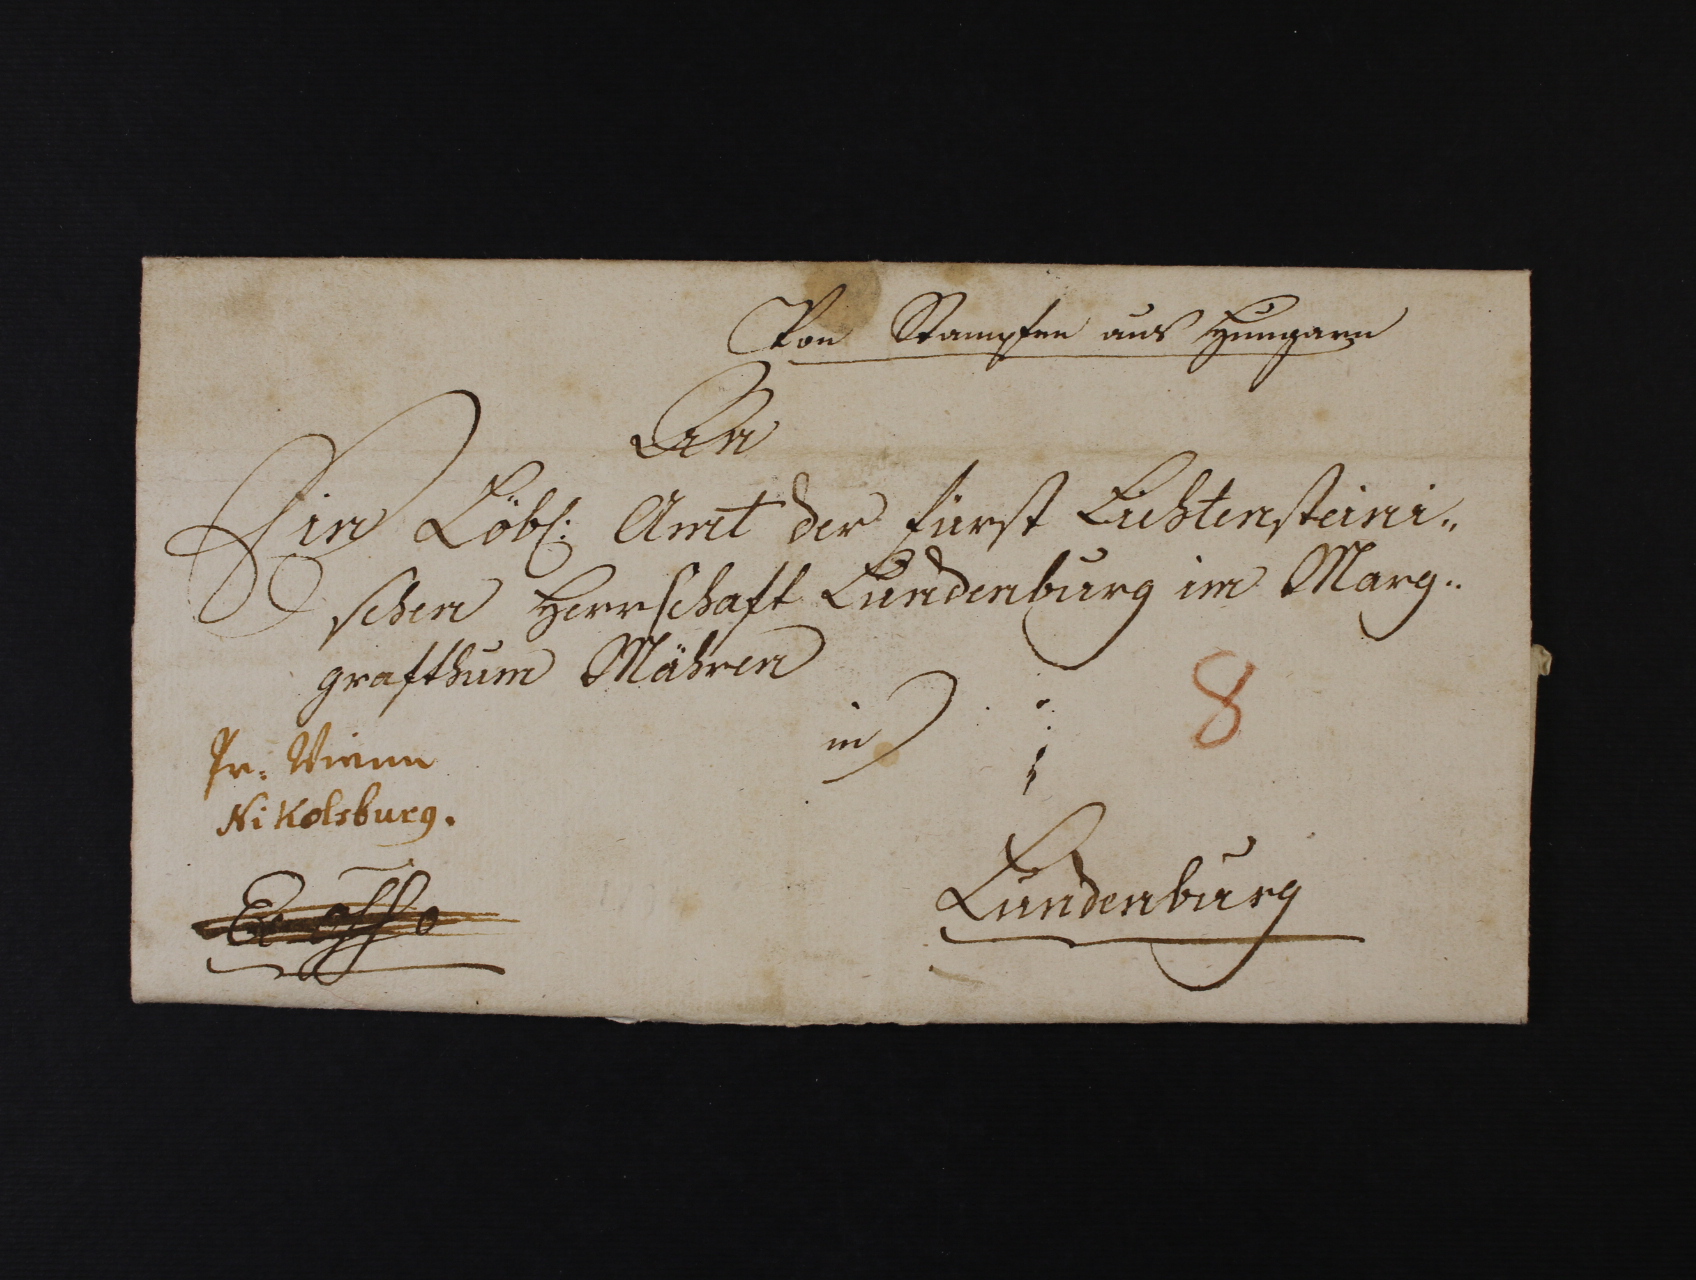 Von Stampfen aus Hungarn
An
Ein Löbl: Amt der fürst Lichtensteini„
schen Herrschaft Lundenburg im Marg„
grafthum Mähren
in
8
Pr: Wienn
Nikolsburg.
Lundenburg
Ex offo